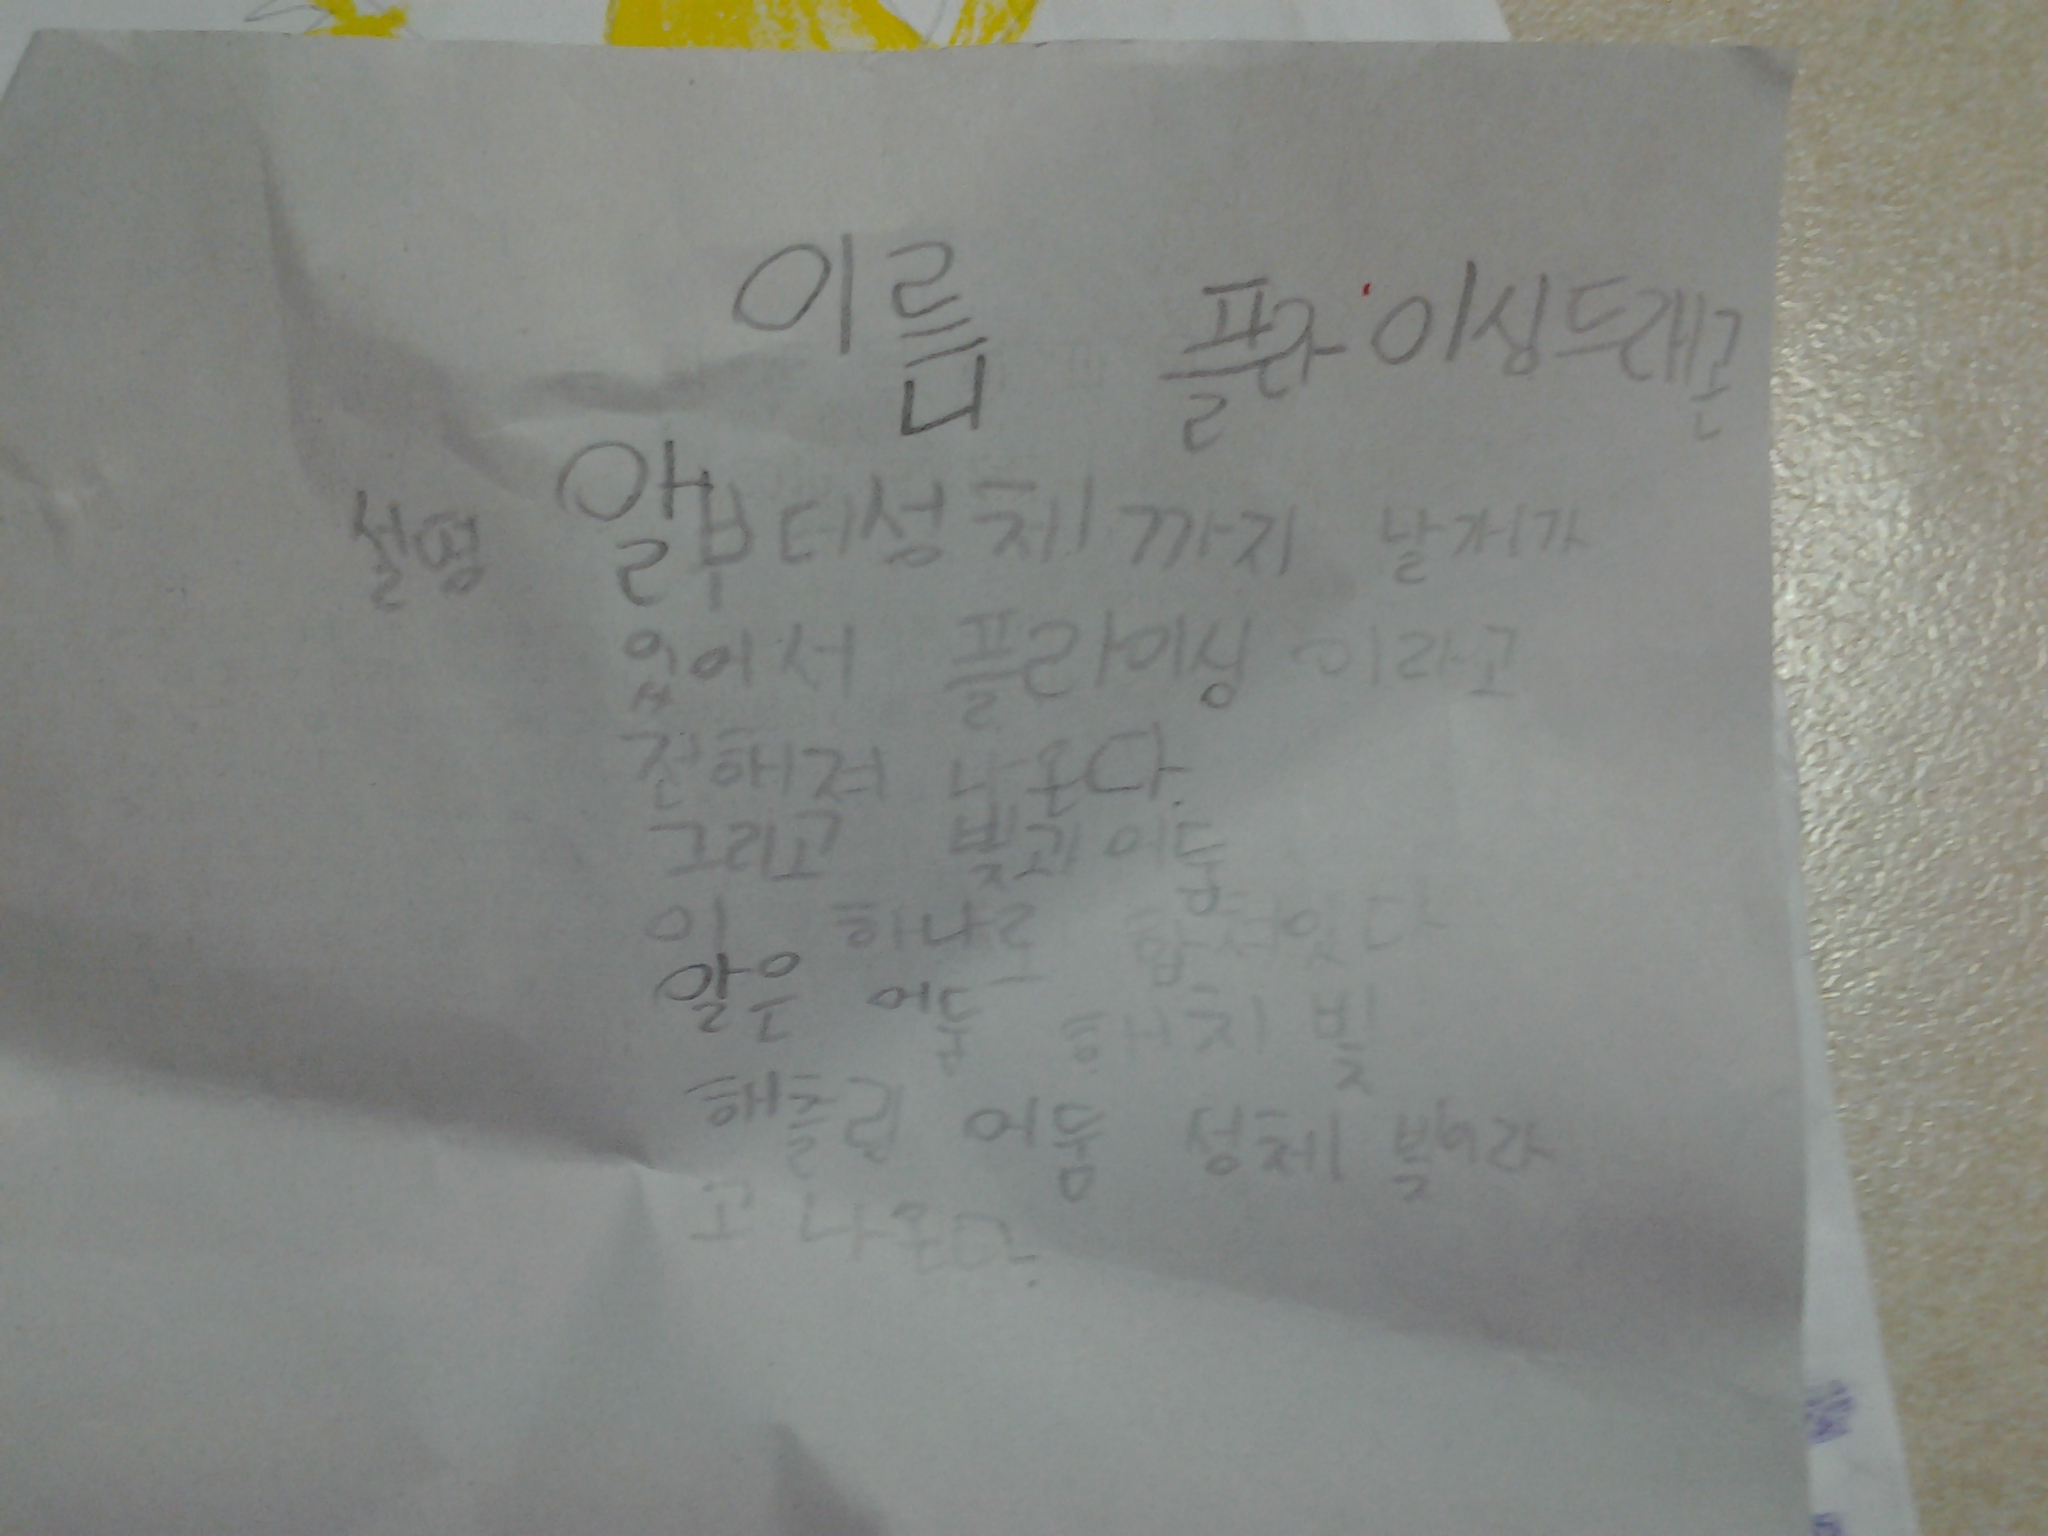 이름 플라이싱드래곤
설명 알부터성체까지 날개가
있어서 플라이싱 이라고
전해져 나온다.
그리고 빛과어둠
이 하나로 합서있다
알은 어둠 해치 빛
해츨링 어둠 성체 빛이라
고 나온다.